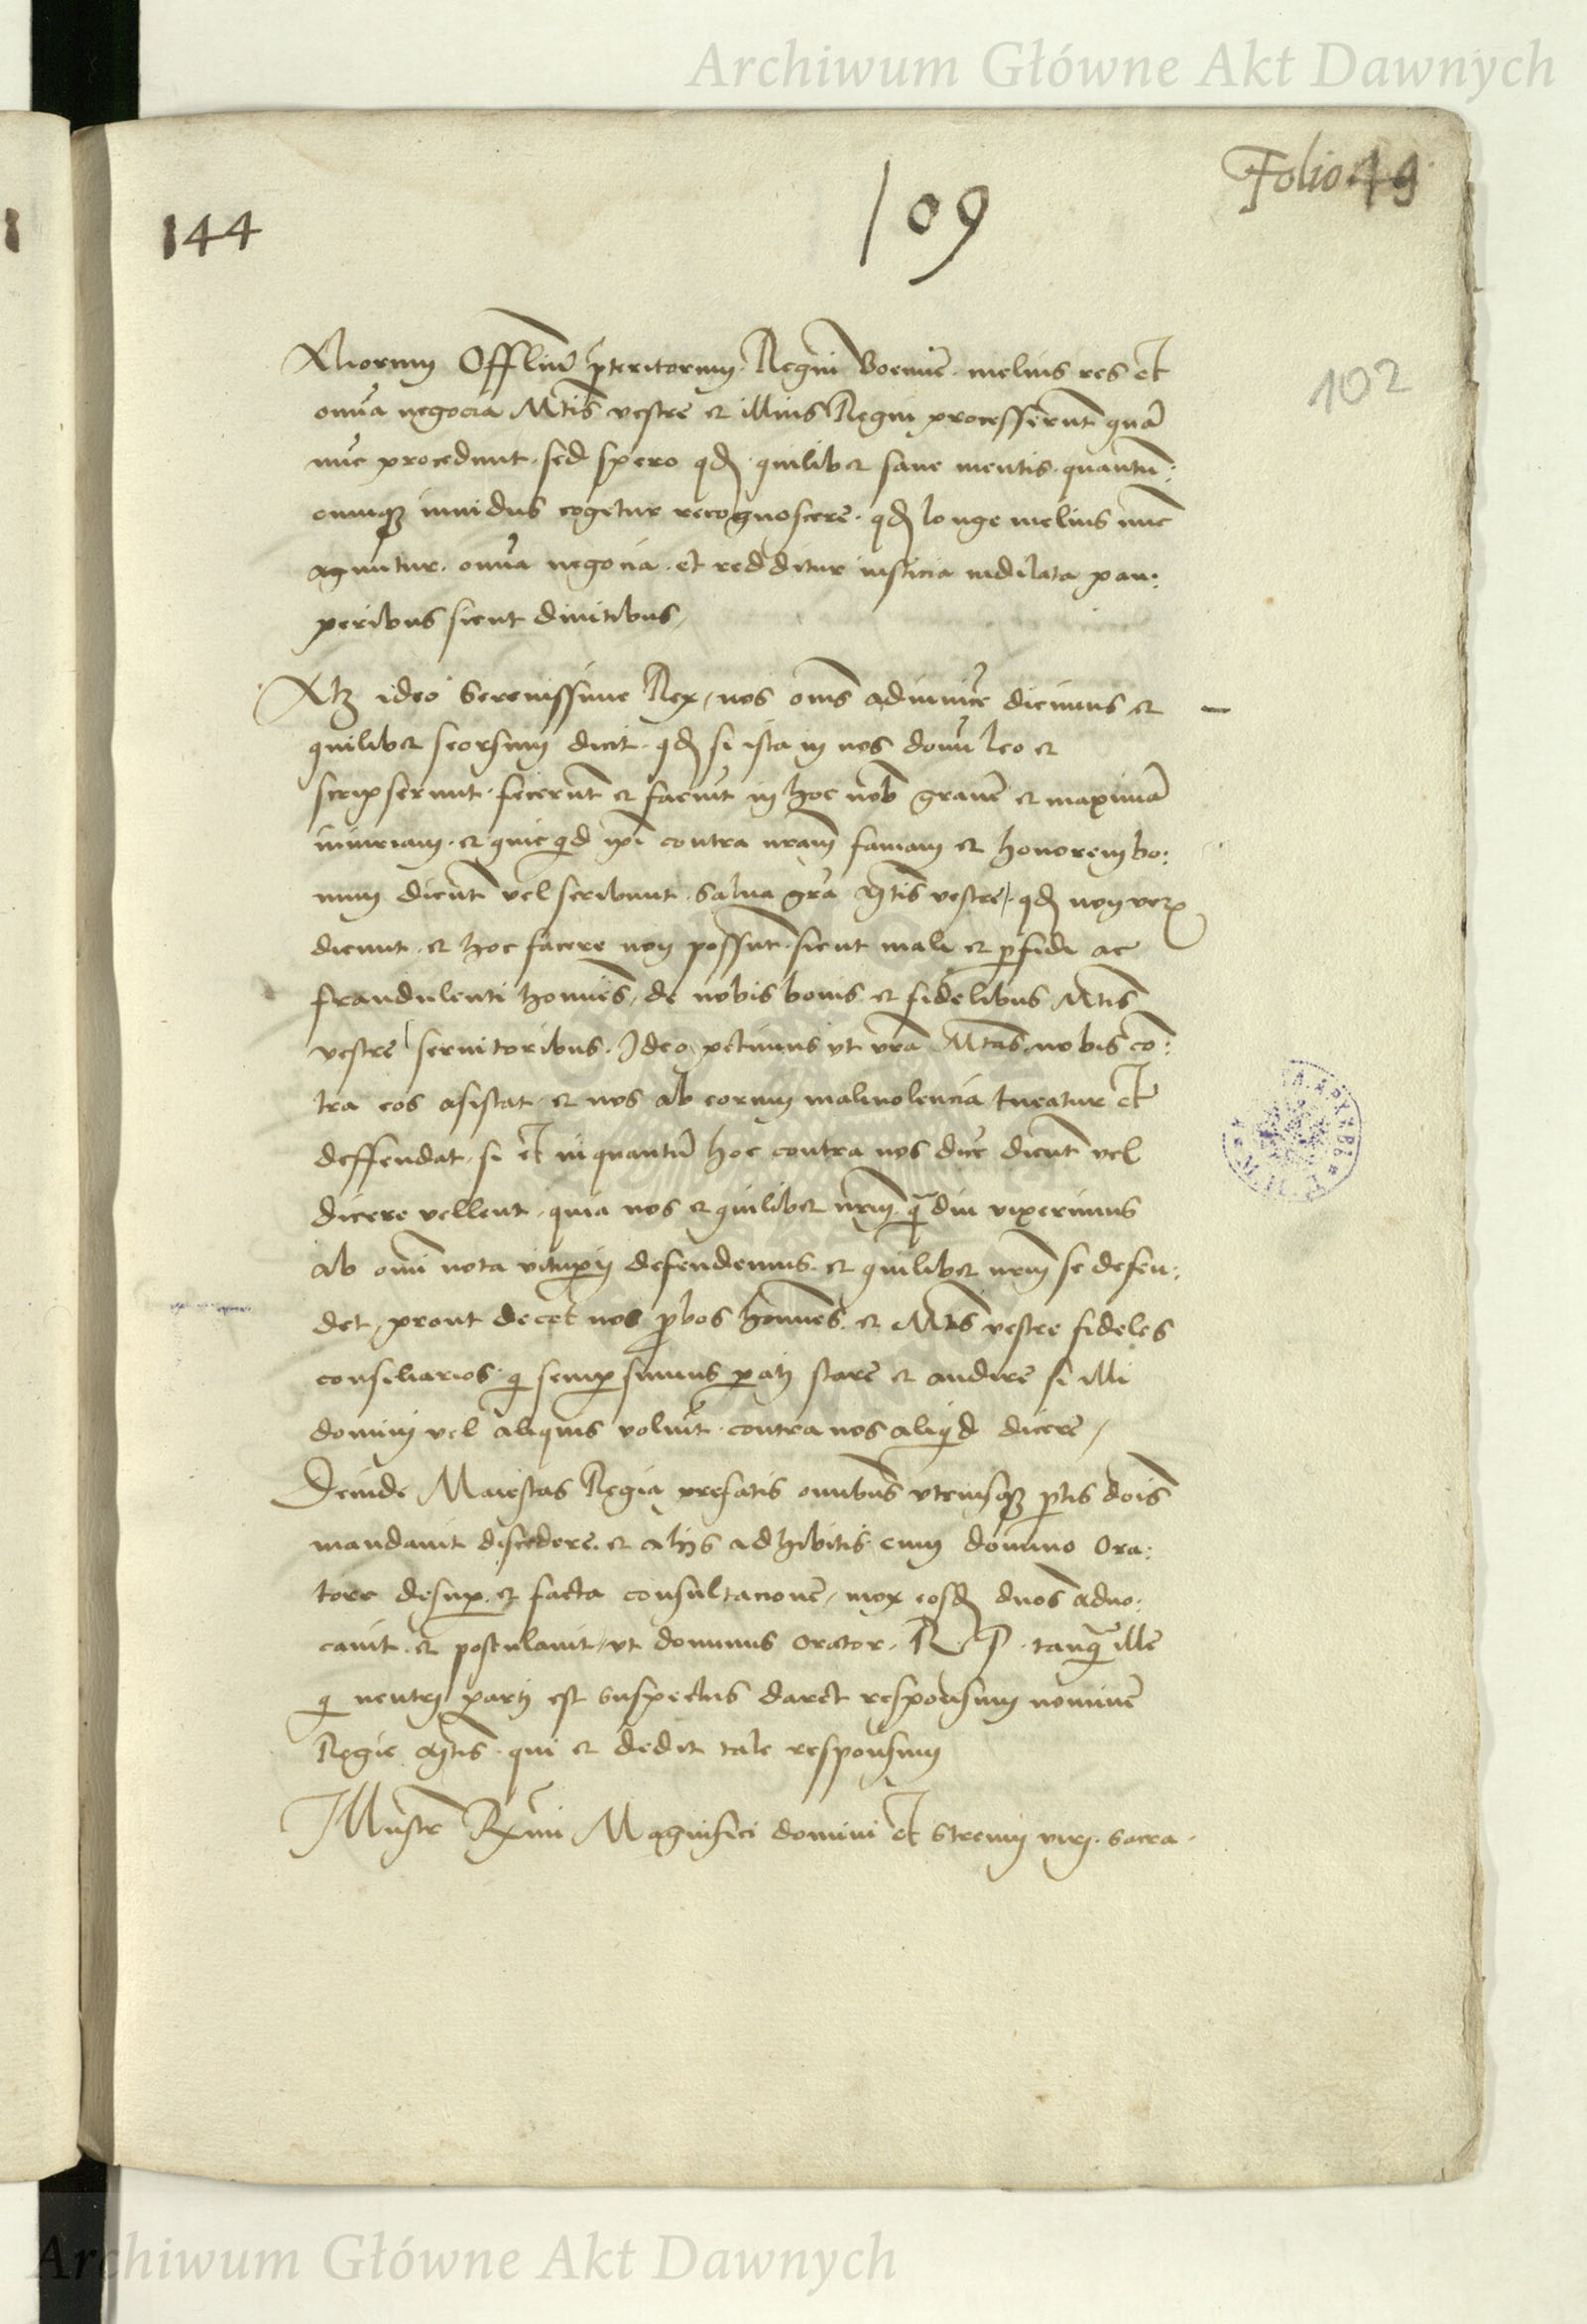 Archiwum Główne Akt Dawnych
Folio 49
144
109
102
Aliorum Offliũ p̃teritorum Regni Boemiẽ melius res et
om̃ia negocia Mtis vestre et illius Regni processerunt quã
nũc procedunt. sed spero qđ quilibet sane mentis quantũ:
cumqz inuidus cogetur recognoscere. qđ longe melius nũc
aguntur. om̃ia negocia et redditur iusticia indilata pau:
peribus sicut diuitibus,
Atqz ideo Serenissime Rex, nos om̃s adinuicẽ dicimus et
quilibet seorsum dicit. qđ si ista in nos domĩ leo et
scripserunt. fecerũt et faciũt in hoc nob grauẽ et maximã
iniuriam. et quicqd ipi contra nram̃ famam et honorem bo:
num dicunt vel scribunt. Salua gr̃a Mtis vestre, qđ non vere
dicunt. et hoc facere non possũt. sicut mali et pfidi ac
fraudulenti homĩes, de nobis bonis et fidelibus Mtis
vestre seruitoribus. Ideo petimus vt vrã Mtas nobis cõ:
tra eos asistat et nos ab eorum maliuolencia tueatur et
deffendat. si et inquantũ hoc contra nos dicẽ dicũt vel
dicere vellent. quia nos et quilibet nrm̃ q̃diu vixerimus
ab om̃i nota vitupij defendemus. et quilibet nrm̃ se defen:
det, prout decet nos pbos homĩes et Mtis vestre fideles
consiliarios. q semp sumus pati stare et audire si illi
domini vel aliquis voluĩt contra nos aliqd dicere,
Deinde Maiestas Regia prefatis omnibus vtriusqz ptis dõis
mandauit discedere. et alijs adhibitis cum domino Ora:
tore desup et facta consultacionẽ, mox eosđ dnos aduo:
cauit. et postulauit, vt dominus Orator. R. P. tanq̃ ille
q neutri parti est suspectus daret responsum nominẽ
Regie Mtis. qui et dedit tale responsum
Illustr̃ Rx̃mi Magnifici domini et Strenui viri. Sacra
Archiwum Główne Akt Dawnych